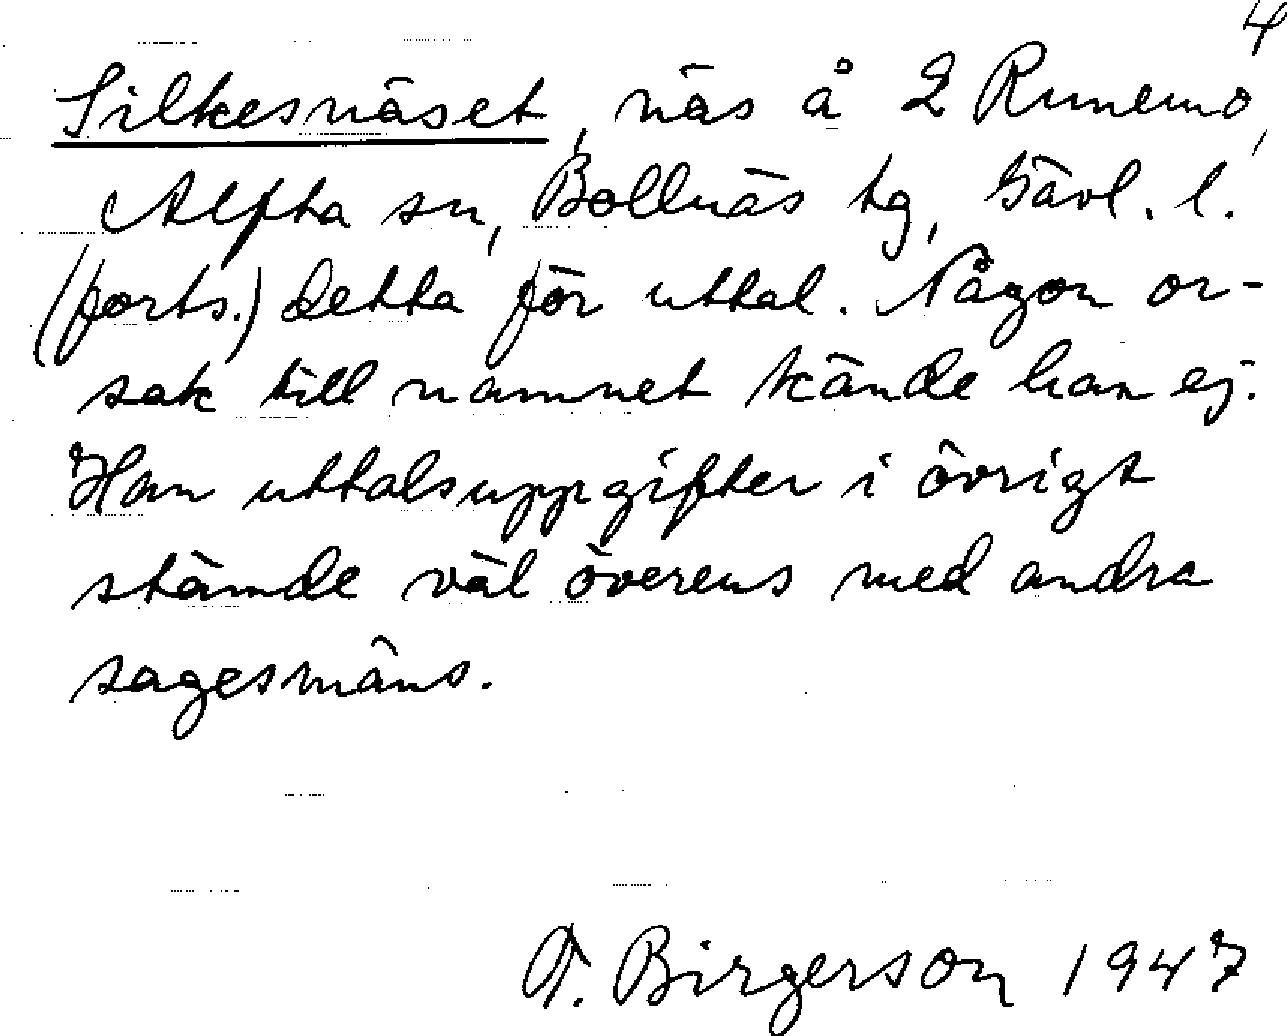 4
Silkesnäset, näs å 2 Runemo,
Alfta sn, Bollnäs tg, Gävl. l.
(forts.) detta för uttal. Någon or-
sak till namnet kände han ej.
Han uttalsuppgifter i övrigt
stämde väl överens med andra
sagesmäns.
T. Birgerson 1947